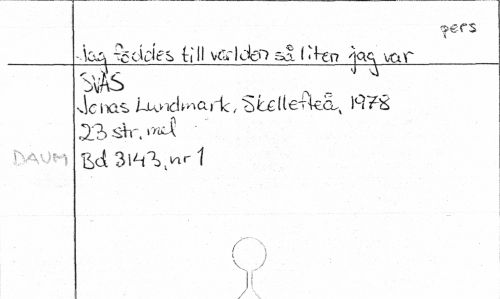 pers
Jag föddes till världen så liten jag var
SVAS
Jonas Lundmark, Skellefteå, 1978
23 str. mel
DAUM Bd 3143, nr 1